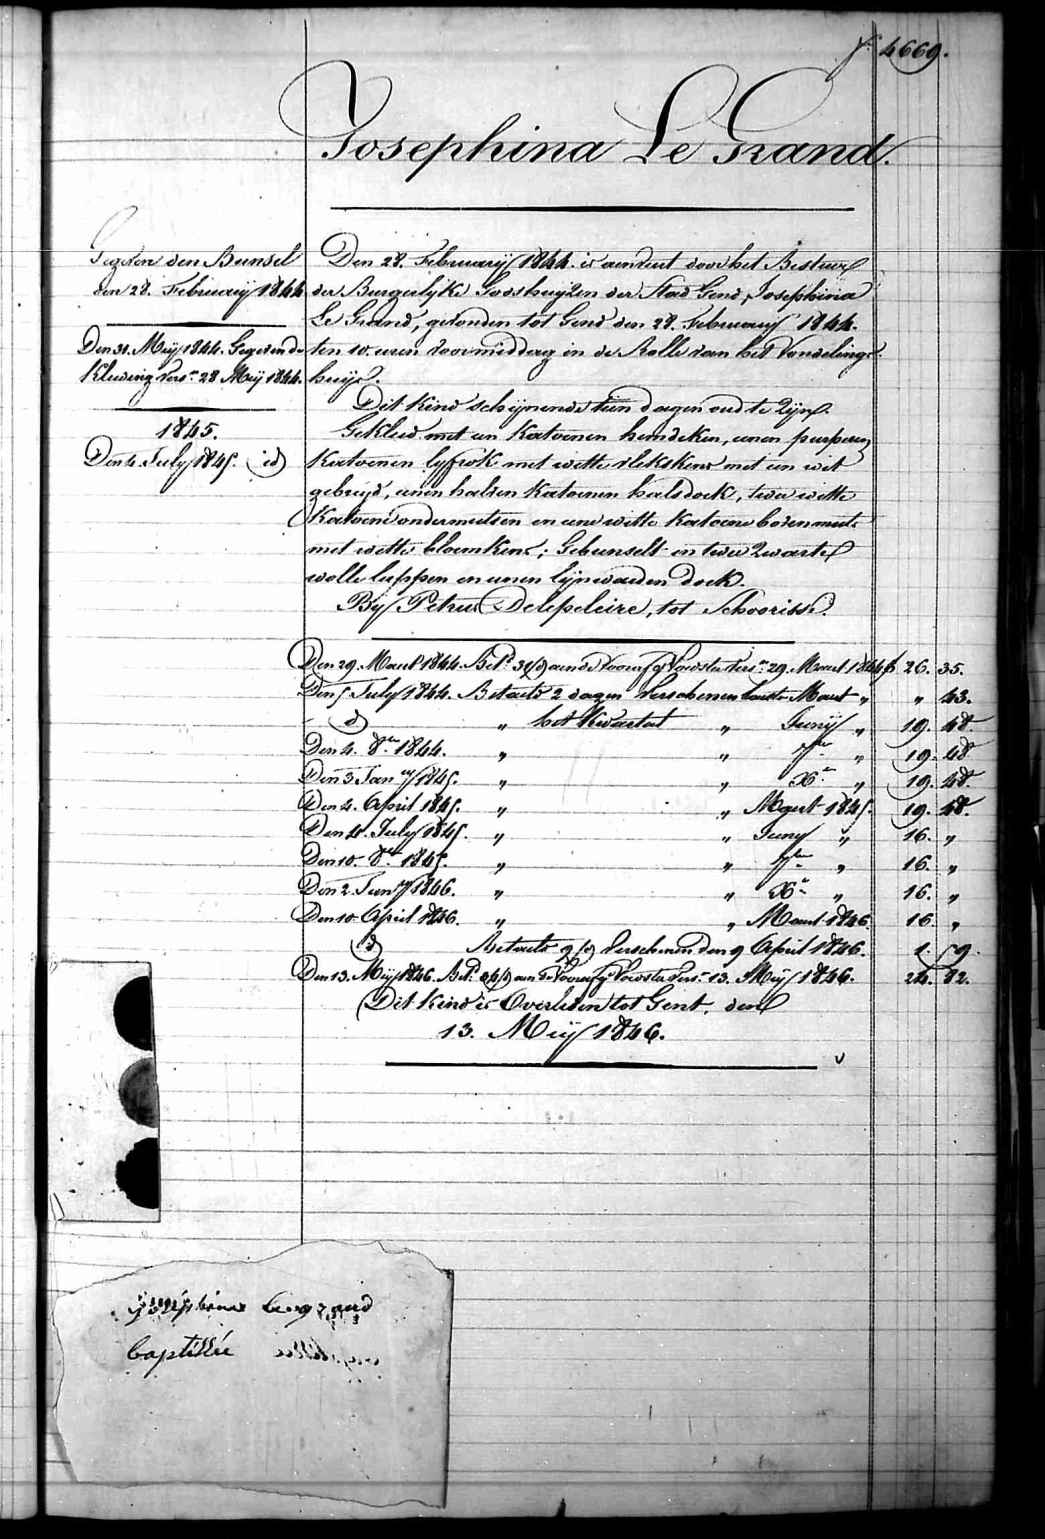 f° 4669.
Josephina Le Grand.
Gegeven den Bunsel
den 28. February 1844
Den 31. Meij 1844. Gegeven de
Kleeding vers.n 28 Meij 1844.
1845.
Den 4. July 1845. id
Den 28. February 1844. is aenveert door het Bestuer
der Burgerlyke Godshuyzen der Stad Gend, Josephina
Le Grand, gevonden tot Gend den 28. February 1844.
ten 10. uren voormiddag in de Rolle van het Vondelings-
huys.
Dit kind schijnende tien dagen oud te zijn.
Gekleed met een katoenen hemdeken, eenen purperen
katoenen lyfrok met witte vlekskens met een wit
gebreyd, eenen halven katoenen halsdoek, twee witte
katoene ondermutsen en eene witte katoene bovenmuts
met witte bloemkens; Gebunselt in twee zwarte
wolle lappen en eenen lijnwaeden doek.
By Petrus Delepeleire, tot Schoorisse.
Den 29. Maert 1844. Bet.d 30/d aen de Voorz.g Voedster vers.n 29. Maert 1844 f 26. 35.
Den 5 July 1844. Betaeld 2 dagen verschenen laetste Maert " " 43.
d° " het Kwartael " Junij " 19. 48.
Den 4. 8bre 1844. " " 7bre " 19. 48.
Den 3. Jan.ry 1845. " " Xbre " 19. 48.
Den 4. April 1845. " " Maert 1845. 19. 48.
Den 4. July 1845. " " Juny " 16. "
Den 10. 8bre 1845. " " 7bre " 16. "
Den 2. Jan.ry 1846. " " Xbre " 16. "
Den 10. April 1846. " " Maert 1846. 16. "
d° Betaeld 9/d verschenen den 9 April 1846. 1. 59.
Den 13. Meij 1846. Bet.d 34/d aen de Voorz.g Voedster vers.n 13. Meij 1846. 24. 82.
Dit kind is Overleden tot Gent, den
13. Meij 1846.
joséphine Le grand
baptissée